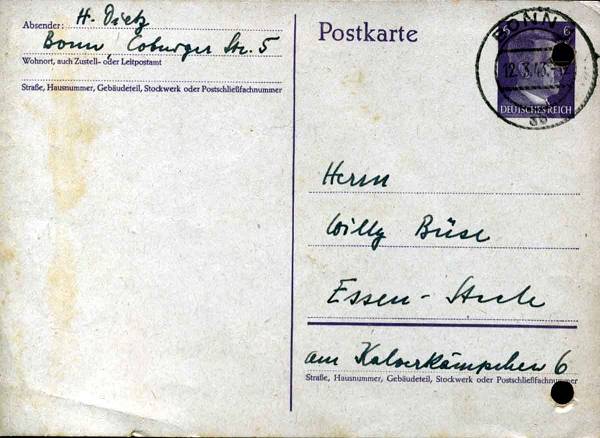 Absender: H. Dietz
Bonn, Coburger Str. 5
Wohnort, auch Zustell- oder Leitpostamt
Straße, Hausnummer, Gebäudeteil, Stockwerk oder Postschließfachnummer
Postkarte
BONN
12.3.43
6
DEUTSCHES REICH
Herrn
Willy Büse
Essen - Steele
am Kalverkämpchen 6
Straße, Hausnummer, Gebäudeteil, Stockwerk oder Postschließfachnummer